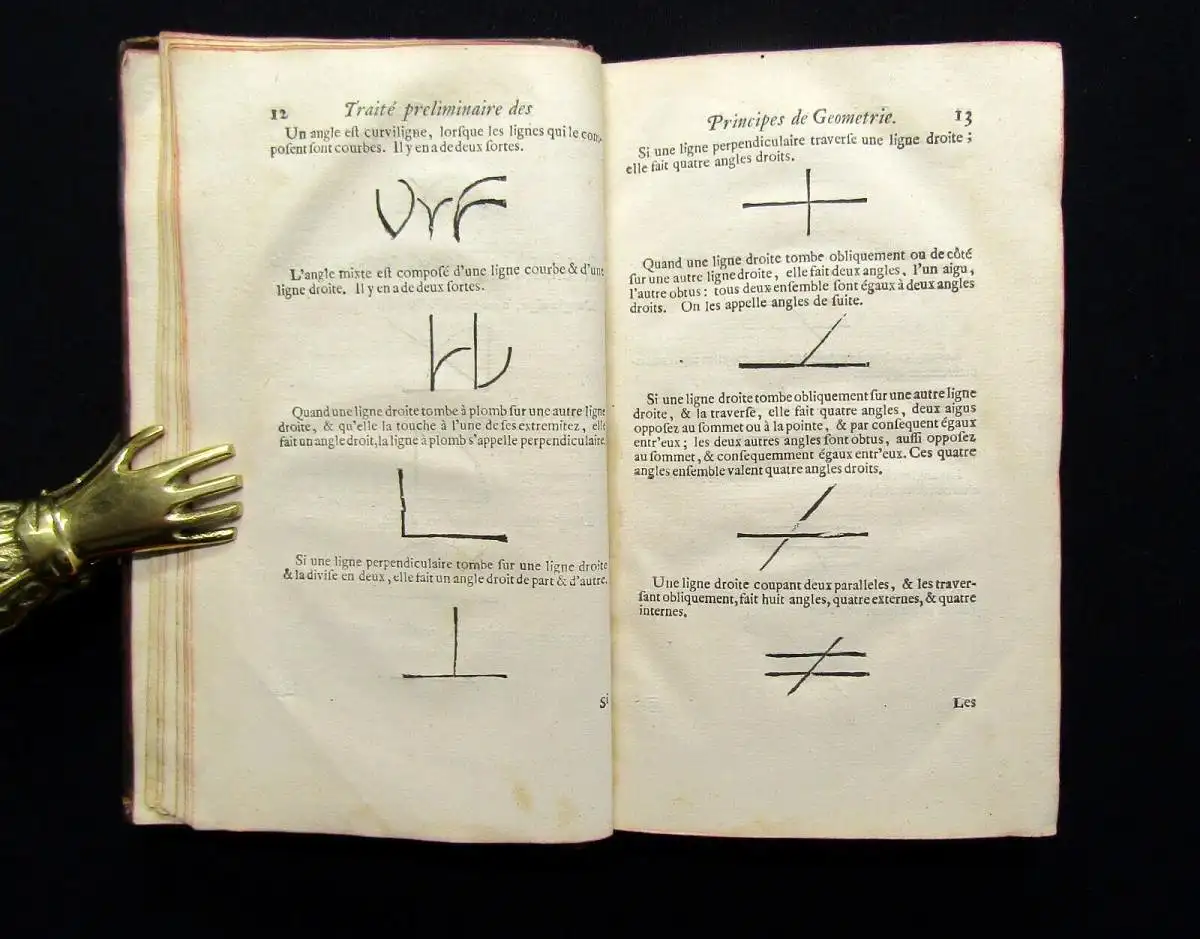 12 Traité preliminaire des
Un angle eſt curviligne, lorſque les lignes qui le com-
poſent ſont courbes. Il y en a de deux ſortes.
L'angle mixte eſt compoſé d'une ligne courbe & d'une
ligne droite. Il y en a de deux ſortes.
Quand une ligne droite tombe à plomb ſur une autre ligne
droite, & qu'elle la touche à l'une de ſes extremitez, elle
fait un angle droit, la ligne à plomb s'appelle perpendiculaire.
Si une ligne perpendiculaire tombe ſur une ligne droite
& la diviſe en deux, elle fait un angle droit de part & d'autre.
Si
Principes de Geometrie. 13
Si une ligne perpendiculaire traverſe une ligne droite ;
elle fait quatre angles droits.
Quand une ligne droite tombe obliquement ou de côté
ſur une autre ligne droite, elle fait deux angles, l'un aigu,
l'autre obtus : tous deux enſemble ſont égaux à deux angles
droits. On les appelle angles de ſuite.
Si une ligne droite tombe obliquement ſur une autre ligne
droite, & la traverſe, elle fait quatre angles, deux aigus
oppoſez au ſommet ou à la pointe, & par conſequent égaux
entr'eux ; les deux autres angles ſont obtus, auſſi oppoſez
au ſommet, & conſequemment égaux entr'eux. Ces quatre
angles enſemble valent quatre angles droits.
Une ligne droite coupant deux paralleles, & les traver-
ſant obliquement, fait huit angles, quatre externes, & quatre
internes.
Les